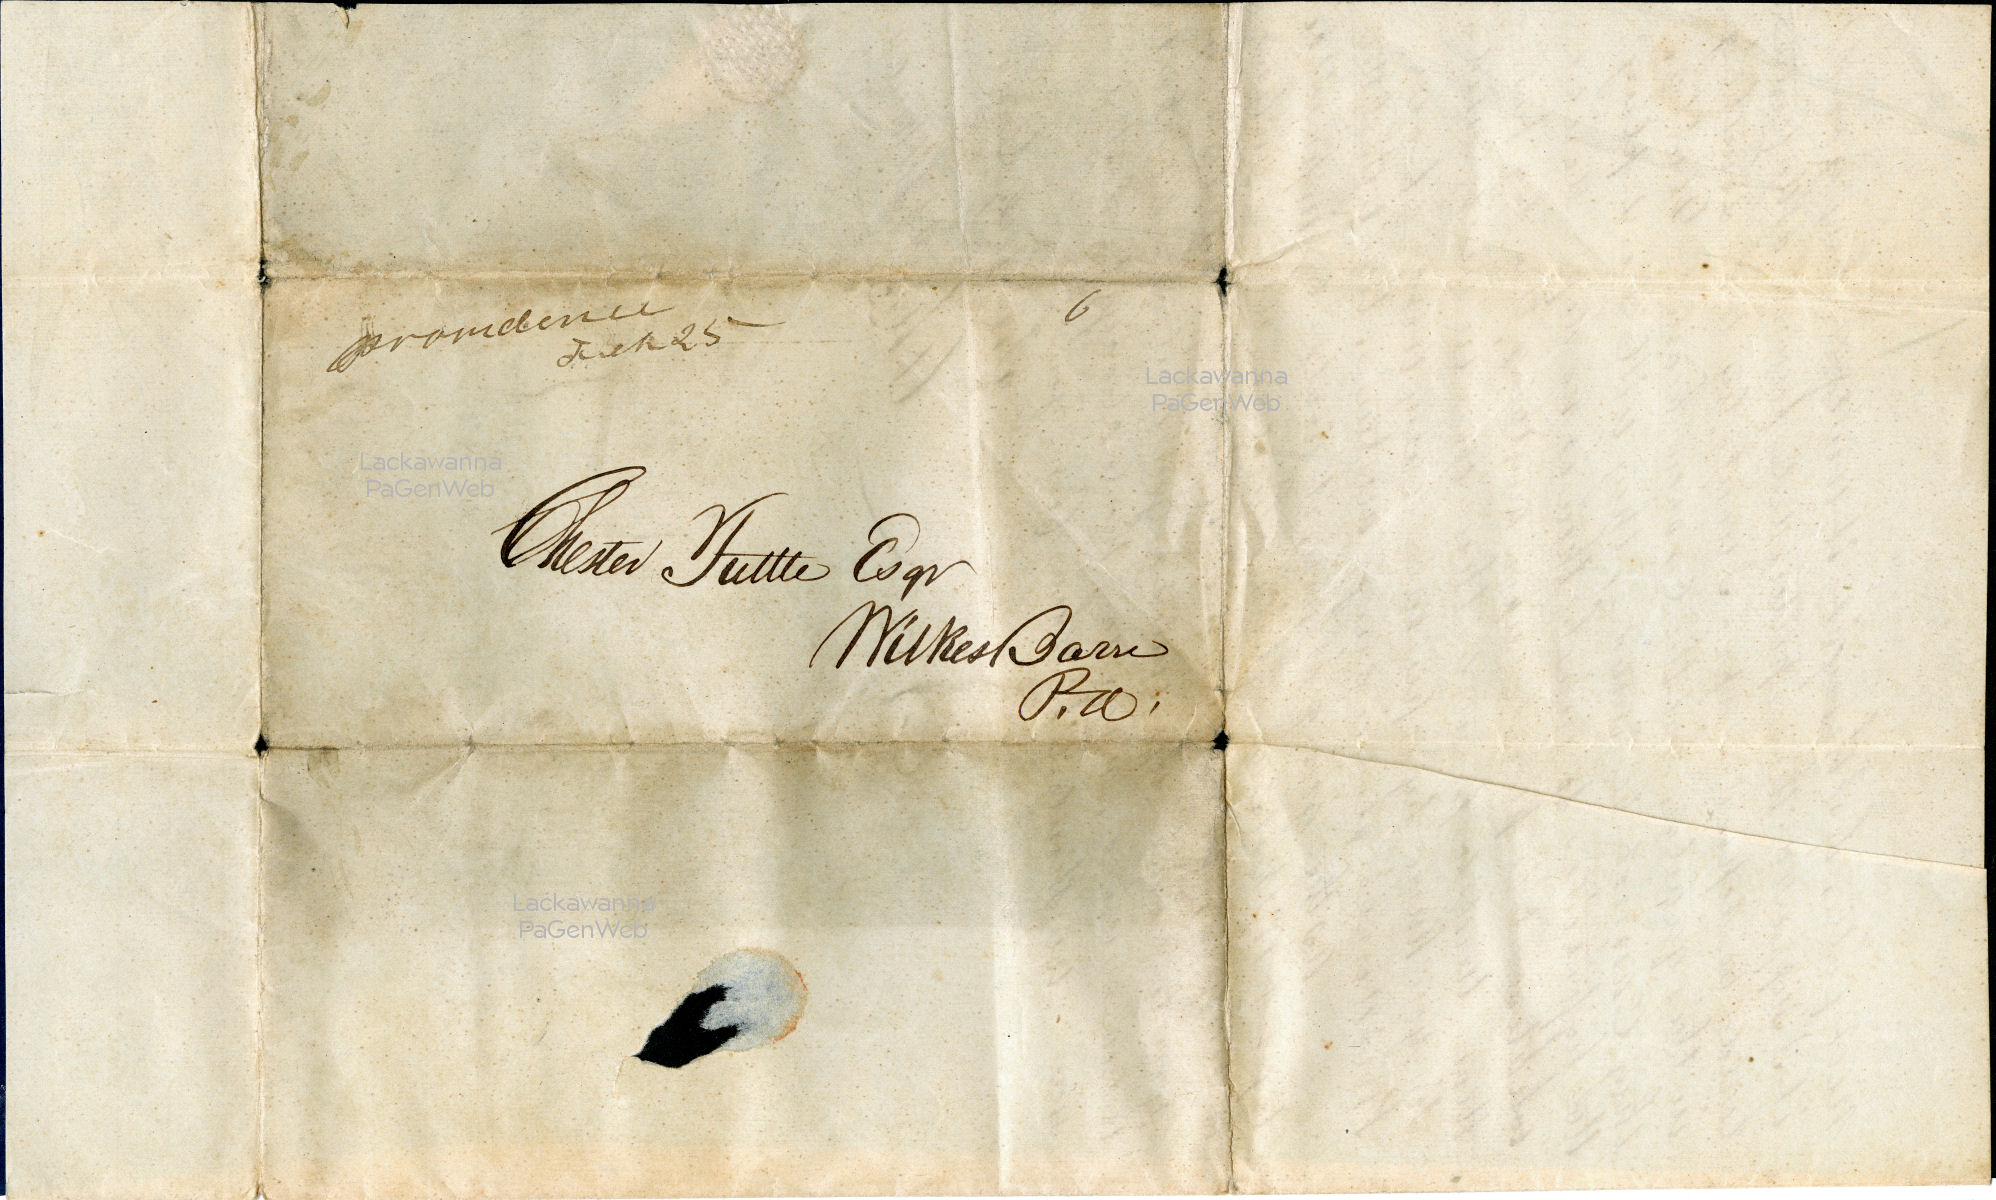 Providence
Feb 25
6
Lackawanna
PaGenWeb
Lackawanna
PaGenWeb
Chester Tuttle Esqr
Wilkes Barre
P.a.
Lackawanna
PaGenWeb